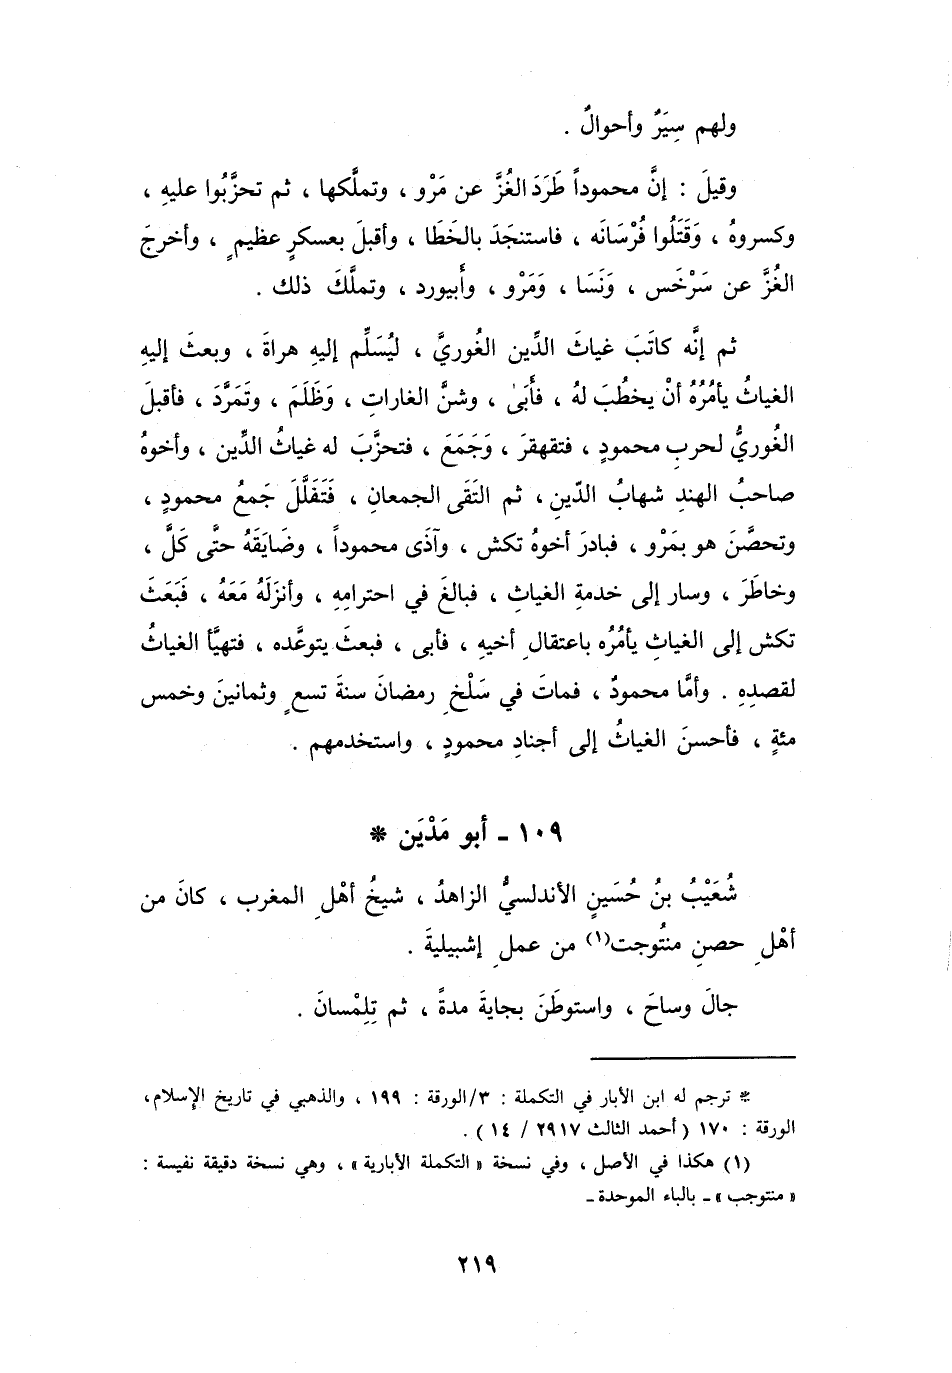 ولهم سِيَرٌ وأحوالٌ .
وقيلَ : إنَّ محموداً طَرَدَ الغُزَّ عن مَرْو ، وتملَّكها ، ثم تحزَّبُوا عليهِ ،
وكسروهُ ، وَقَتَلُوا فُرْسَانَه ، فاستنجَدَ بالخَطَا ، وأقبلَ بعسكرٍ عظيمٍ ، وأخرجَ
الغُزَّ عن سَرْخَس ، وَنَسَا ، وَمَرْو ، وأَبيورد ، وتملَّكَ ذلك .
ثم إنَّه كاتَبَ غياثَ الدِّين الغُوريَّ ، ليُسَلِّم إليهِ هراةَ ، وبعثَ إليهِ
الغياثُ يأمُرُهُ أنْ يخطُبَ لهُ ، فأَبَىٰ ، وشنَّ الغاراتِ ، وَظَلَمَ ، وتَمَرَّدَ ، فأقبلَ
الغُوريُّ لحربِ محمودٍ ، فتقهقرَ ، وَجَمَعَ ، فتحزَّبَ له غياثُ الدِّين ، وأخوهُ
صاحبُ الهندِ شهابُ الدّينِ ، ثم التَقَى الجمعانِ ، فَتَفَلَّلَ جَمعُ محمودٍ ،
وتحصَّنَ هو بمَرْو ، فبادرَ أخوهُ تكش ، وآذَى محموداً ، وضَايَقَهُ حتَّى كَلَّ ،
وخاطَرَ ، وسار إلى خدمةِ الغياثِ ، فبالغَ في احترامِهِ ، وأنزَلَهُ مَعَهُ ، فَبَعَثَ
تكش إلى الغياثِ يأمُرُه باعتقالِ أخيهِ ، فأبى ، فبعثَ يتوعَّده ، فتهيَّأ الغياثُ
لقصدِهِ . وأمَّا محمودٌ ، فماتَ في سَلْخِ رمضانَ سنةَ تسعٍ وثمانينَ وخمس
مئةٍ ، فأحسنَ الغياثُ إلى أجنادِ محمودٍ ، واستخدمهم .
١٠٩ ـ أبو مَدْيَن *
شُعَيْبُ بنُ حُسَينٍ الأندلسيُّ الزاهدُ ، شيخُ أهْلِ المغرب ، كانَ من
أهْلِ حصنِ منتُوجت(١) من عملِ إشبيليةَ .
جالَ وساحَ ، واستوطَنَ بجايةَ مدةً ، ثم تِلِمْسانَ .
* ترجم له ابن الأبار في التكملة : ٣/الورقة : ١٩٩ ، والذهبي في تاريخ الإسلام،
الورقة : ١٧٠ (أحمد الثالث ٢٩١٧ / ١٤) .
(١) هكذا في الأصل ، وفي نسخة «التكملة الأبارية» ، وهي نسخة دقيقة نفيسة :
«منتوجب» ـ بالباء الموحدة ـ
٢١٩